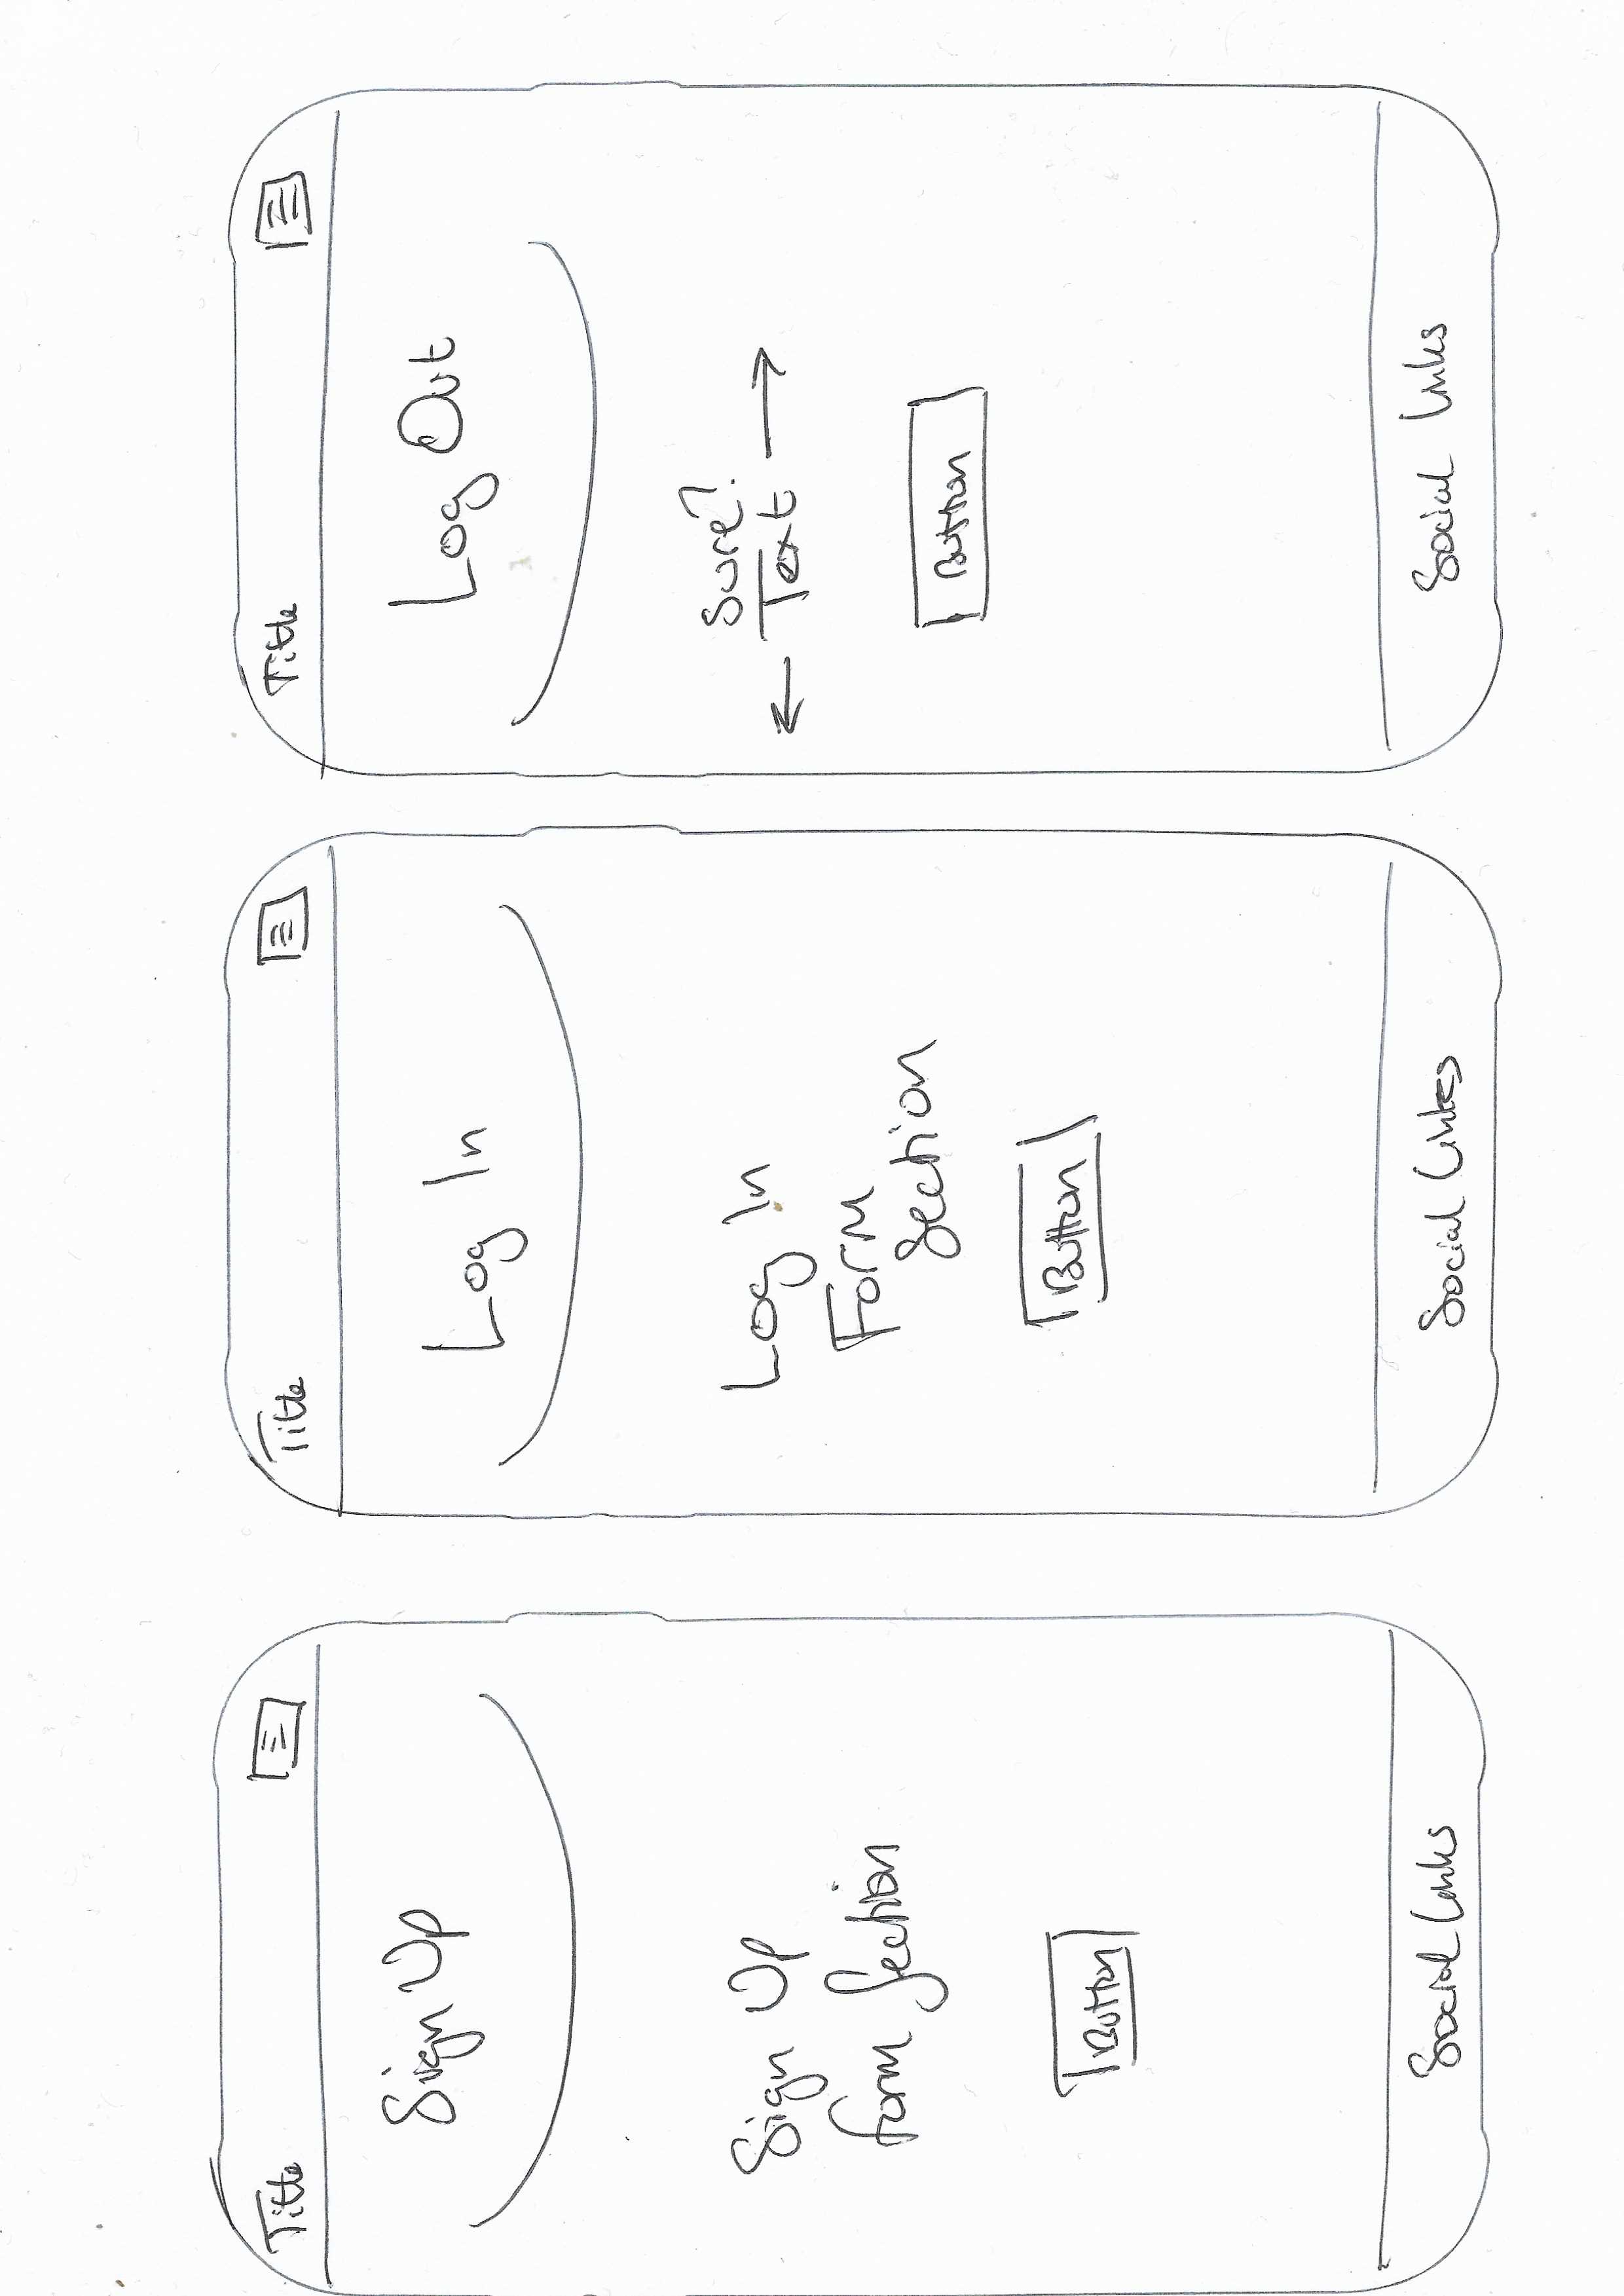 Title
Sign Up
Sign Up
form Section
Button
Social Links
Title
Log In
Log In
Form
Section
Button
Social Links
Title
Log Out
Sure?
Text
Button
Social Links